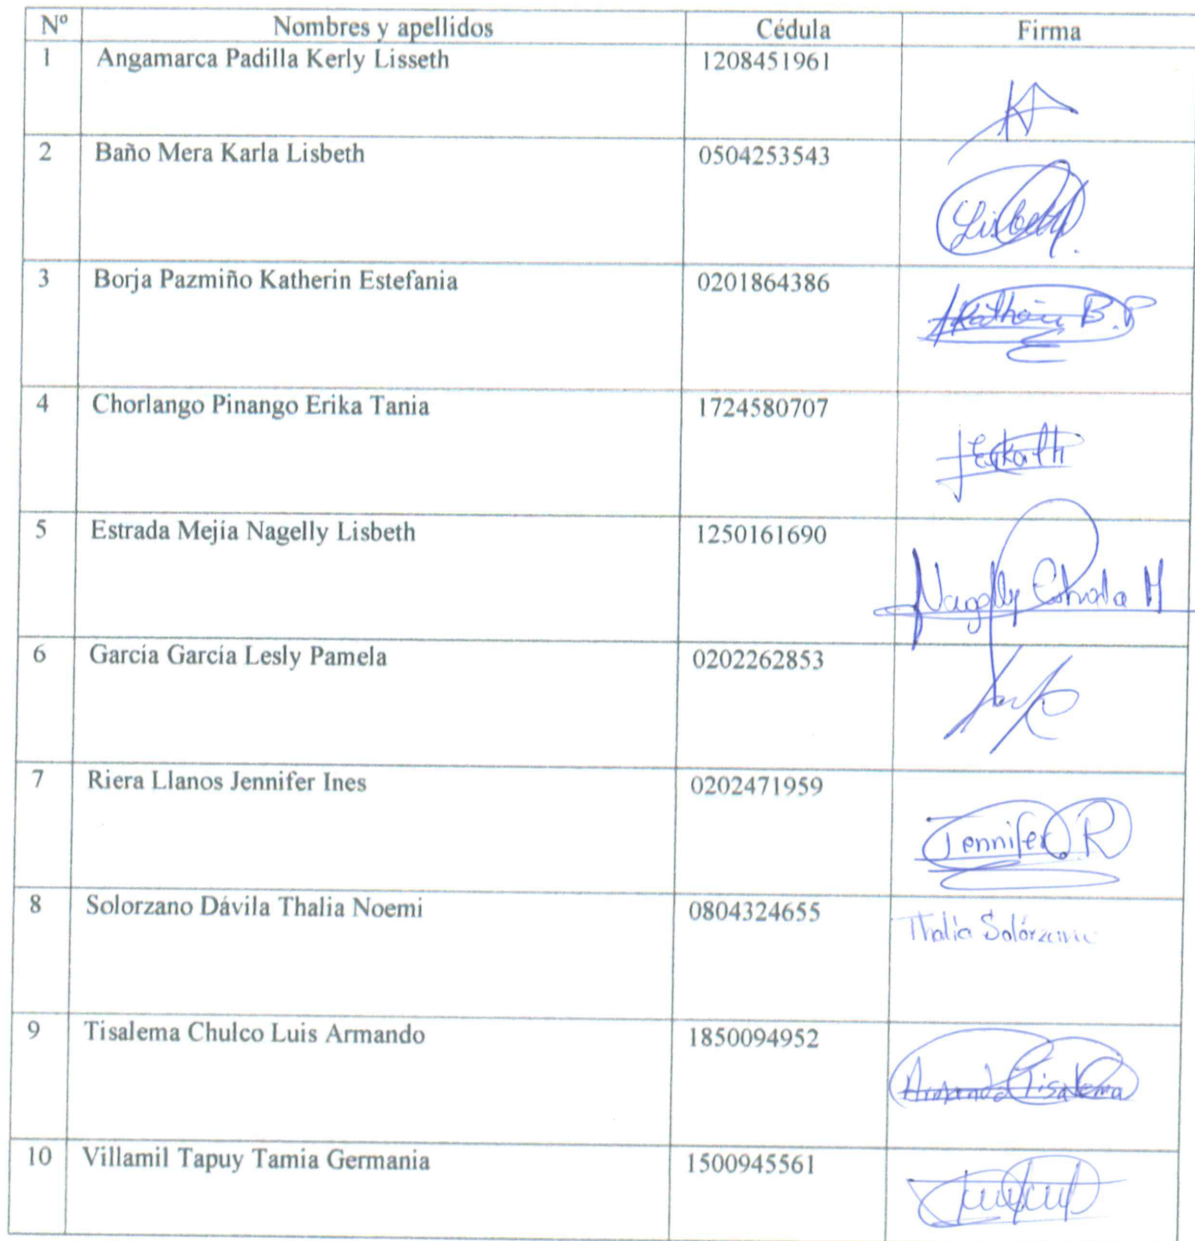 Nº Nombres y apellidos Cédula Firma
1 Angamarca Padilla Kerly Lisseth 1208451961
2 Baño Mera Karla Lisbeth 0504253543 Lisbeth
3 Borja Pazmiño Katherin Estefania 0201864386 B.P
4 Chorlango Pinango Erika Tania 1724580707
5 Estrada Mejía Nagelly Lisbeth 1250161690 Nagelly Estrada M
6 García García Lesly Pamela 0202262853
7 Riera Llanos Jennifer Ines 0202471959 Jennifer. R
8 Solorzano Dávila Thalia Noemi 0804324655 Thalia Solórzano
9 Tisalema Chulco Luis Armando 1850094952 Armando Tisalema
10 Villamil Tapuy Tamia Germania 1500945561